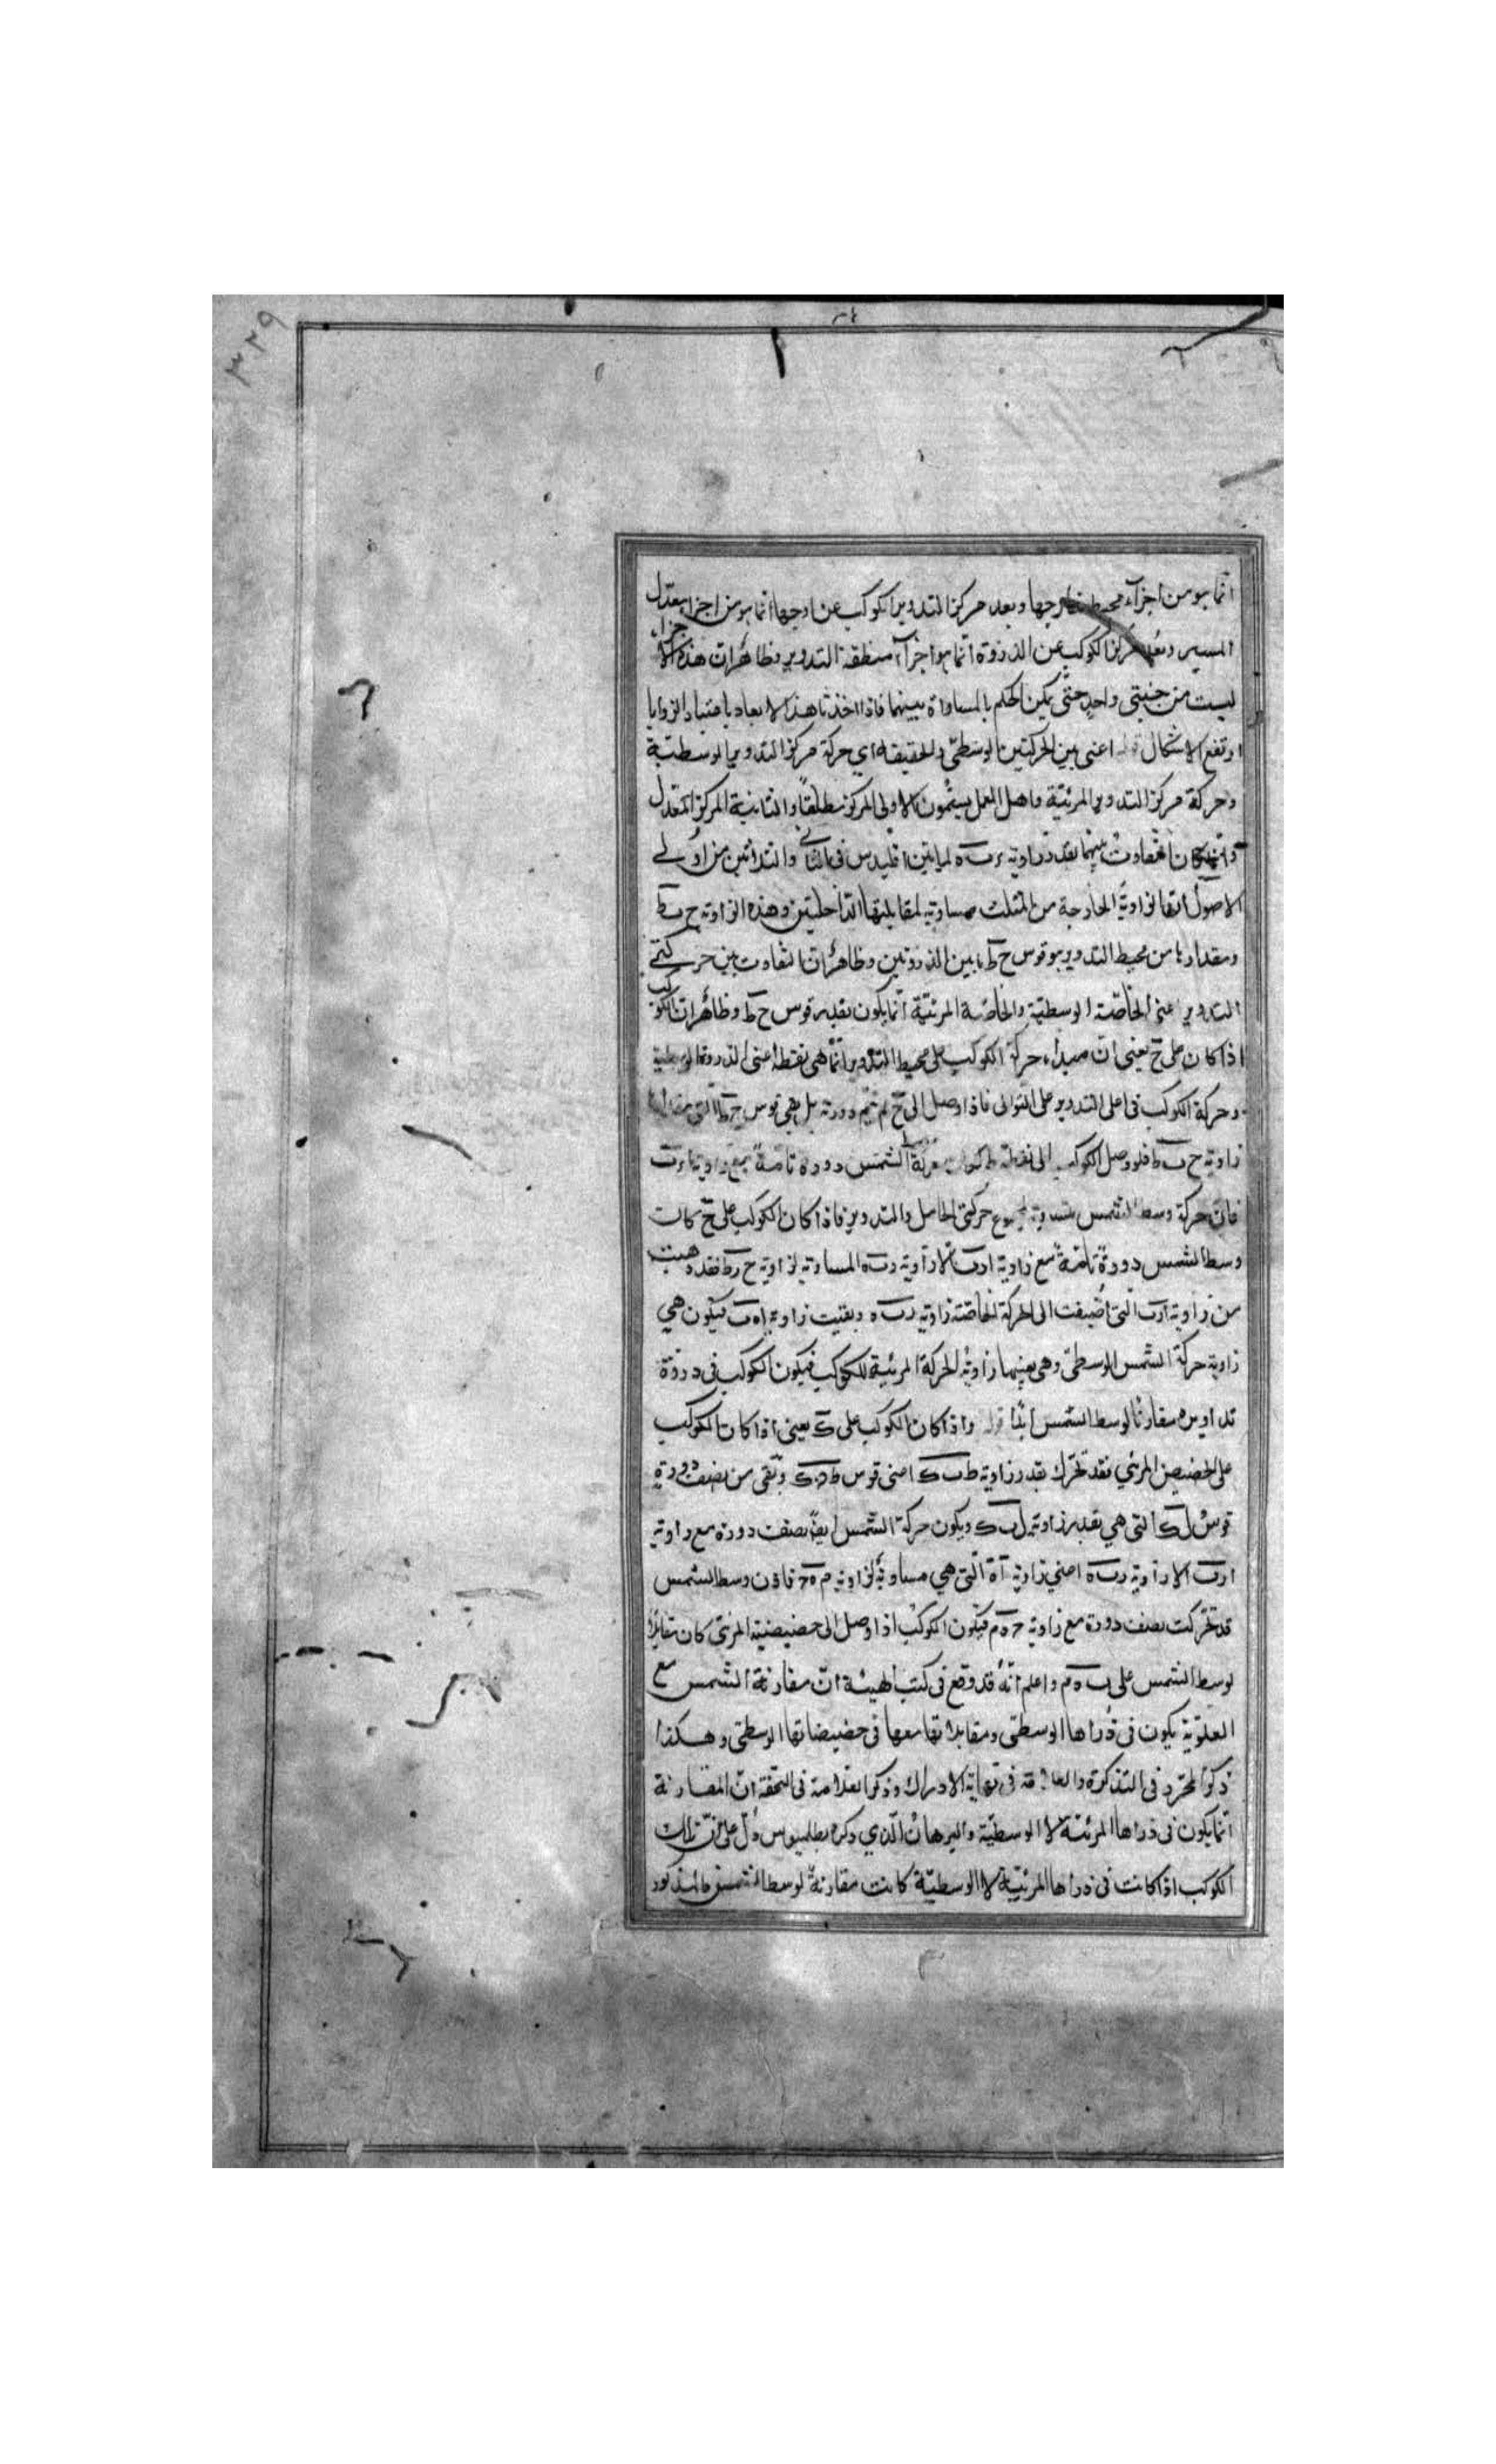 ٣٢٩
انما هو من اجزآء محيط خارجها وبعد مركز التدوير الكوكب عن اوجها انما هو من اجزا معدل
المسير وبعد مركز الكوكب عن الذروة انما هو اجزآء منطقة التدوير وظاهر ان هذه الاجزاء
ليست من جنبتى واحد حتى يكون الحكم بالمساواة بينهما فاذا اخذنا هذه الابعاد باعتبار الزوايا
ارتفع الاشكال قوله اعنى بين الحركتين الوسطى والحقيقه اي حركة مركز التدوير الوسطيّة
وحركة مركز التدوير المرئيّة واهل العمل يسمّون الاولى المركز مطلقاً والثانية المركز المعدّل
وانما كان التفاوت بينهما بقدر زاوية ر ب ه لما بيّن اقليدس في الثاني والثلاثين من اولى
الاصول ان الزاوية الخارجة من المثلث مساوية لمقابليتها الداخلتين وهذه الزاوية ح ب ط
ومقدارها من محيط التدوير هو قوس ح ط ما بين الذروتين وظاهر ان التفاوت بين حركتى
التدوير اعنى الخاصّة الوسطيّة والخاصّة المرئيّة انما يكون بقدر قوس ح ط وظاهر ان الكوكب
اذا كان على ح يعنى انّ مبداء حركة الكوكب على محيط التدوير انما هى نقطة اعنى الذروة الوسطية
وحركة الكوكب فى اعلى التدوير على التوالى فاذا وصل الى ح لم يتم دورته بل بقى قوس ح ط التى مقدارها
زاوية ح ب ط فلو وصل الكوكب الى نقطة ط كان حركة وسط الشمس دورة تامّة مع زاوية ا ر ب
فان حركة وسط الشمس مساوية لمجموع حركتى الحامل والتدوير فاذا كان الكوكب على ح كانت
وسط الشمس دورة تامّة مع زاوية ا ر ب الا زاوية ر ب ه المساوية لزاوية ح ب ط فقد ذهبت
من زاوية ا ر ب التى اُضيفت الى الحركة الخاصّة زاوية ر ب ه وبقيت زاوية ا ه ب فيكون هي
زاوية حركة الشمس الوسطىّ وهى بعينها زاوية الحركة المرئية للكوكب فيكون الكوكب فى ذروة
تداويره مقارنا لوسط الشمس ابدًا قوله واذا كان الكوكب على ك يعنى اذا كان الكوكب
على الحضيض المرئي فقد تحرّك بقدر زاوية ط ب ك اعنى قوس ط ك وبقى من نصف دورته
قوس ل ك التي هي بقدر زاوية ل ب ك ويكون حركة الشمس ايضًا نصف دورة مع زاوية
ا ر ب الا زاوية ر ب ه اعني زاوية التي هي مساوية لزاوية م ه ح فاذن وسط الشمس
قد تحرّكت نصف دورة مع زاوية ح ه م فيكون الكوكب اذا وصل الى حضيضه المرئى كان مقابلا
لوسط الشمس على ب ه م واعلم انّه قد وقع فى كتب الهيئة انّ مقارنة الشمس مع
العلويّة يكون فى ذُراها الوسطى ومقابلاتها معها فى حضيضاتها الوسطى وهكذا
ذكر المحرّر فى التذكرة والعلامة فى نهاية الادراك وذكر العلامة فى التحفة انّ المقارنة
انما يكون فى ذراها المرئيّة لا الوسطيّة والبرهان الّذي ذكره بطلميوس دلّ على انّ تلك
الكوكب اذا كانت فى ذراها المرئيّة لا الوسطيّة كانت مقارنةً لوسط الشمس